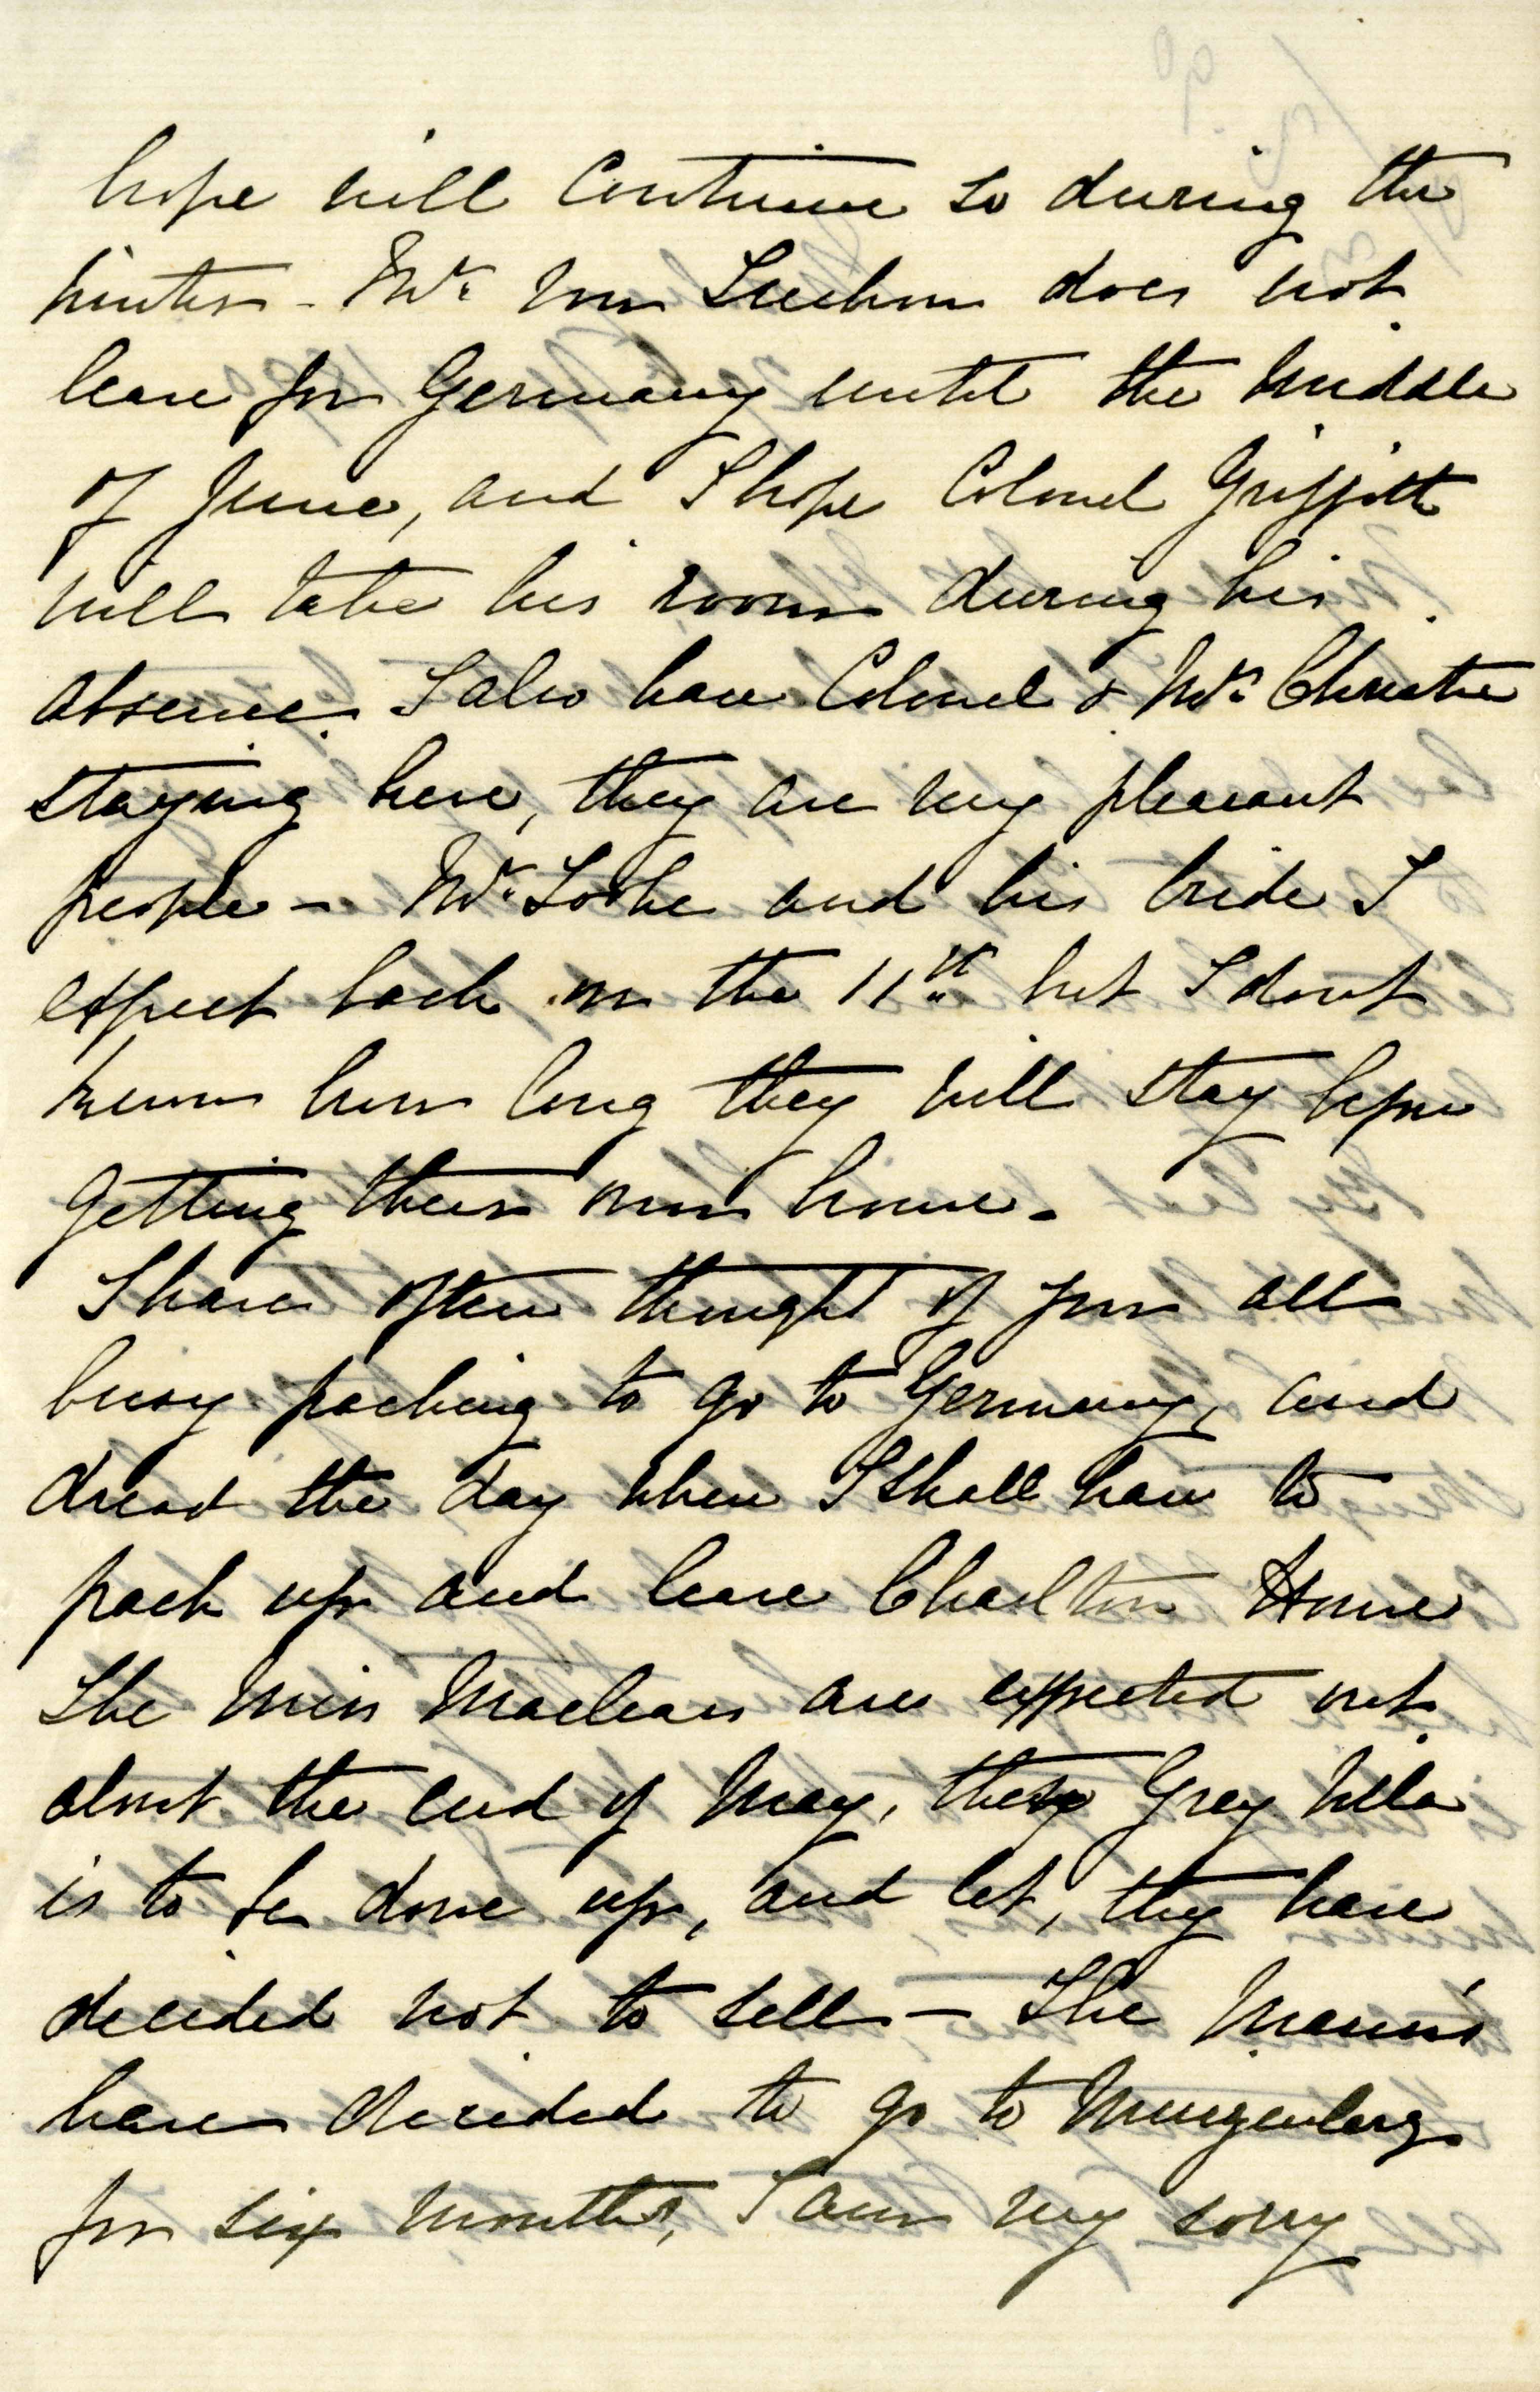 hope will continue so during the
winter - Mr. von Luckow does not
leave for Germany until the middle
of June, and I hope Colonel Griffith
will take his room during his
absence. I also have Colonel & Mrs. Christie
staying here, they are very pleasant
people - Mr. Locke and his bride I
expect back on the 11th but I dont
know how long they will stay before
getting their own house.
I have often thought of you all
busy packing to go to Germany, and
dread the day when I shall have to
pack up and leave Charlton House
The Miss Macleans are expected out
about the end of May, Grey Villa
is to be done up, and let, they have
decided not to sell - The
have decided to go to Muizenberg
for six months, I am very sorry